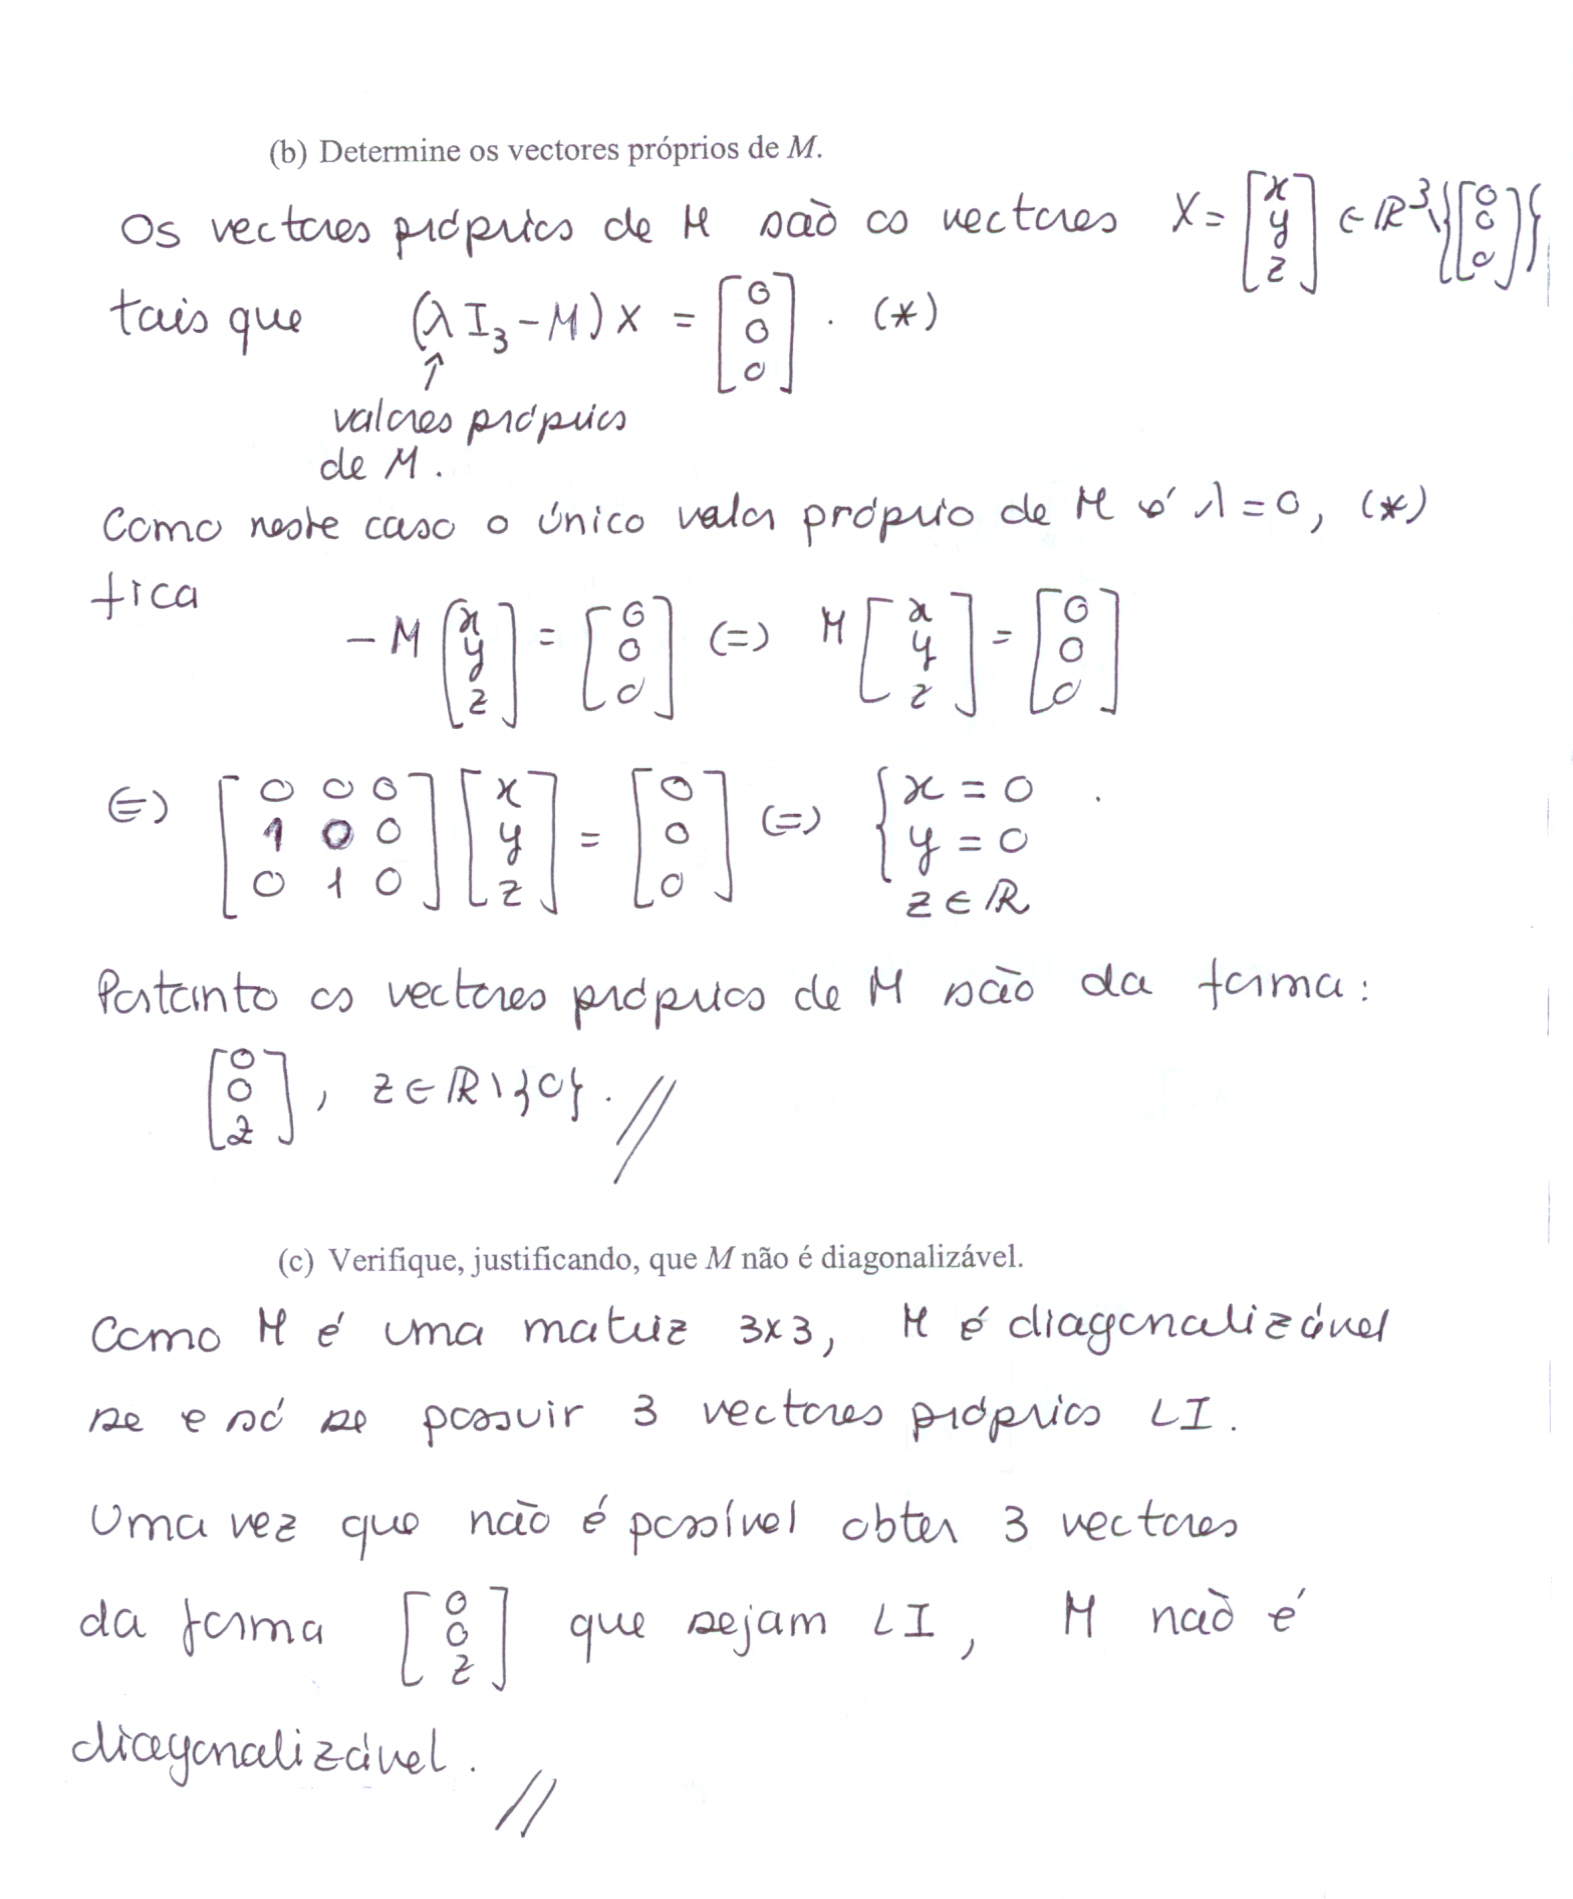 (b) Determine os vectores próprios de M.
Os vectores próprios de M são os vectores X = [x y z] ∈ ℝ³\{[0 0 0]}
tais que (λ I₃ - M) X = [0 0 0] . (*)
↑
valores próprios
de M.
Como neste caso o único valor próprio de M é λ = 0, (*)
fica
- M [x y z] = [0 0 0] (=) M [x y z] = [0 0 0]
(=) [0 0 0; 1 0 0; 0 1 0] [x y z] = [0 0 0] (=) { x = 0
y = 0
z ∈ ℝ
Portanto os vectores próprios de M são da forma:
[0 0 z] , z ∈ ℝ\{0} . //
(c) Verifique, justificando, que M não é diagonalizável.
Como M é uma matriz 3x3, M é diagonalizável
se e só se possuir 3 vectores próprios LI.
Uma vez que não é possível obter 3 vectores
da forma [0 0 z] que sejam LI, M não é
diagonalizável. //